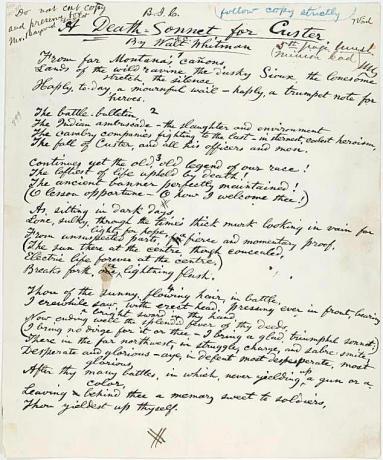 Do not cut copy
and preserve for
Mr. Bayard
B. I. C.
(follow copy strictly)
Wed
A Death-Sonnet for Custer
By Walt Whitman
5th page
From far Montana's cañons,
Lands of the wild ravine, the dusky Sioux, the lonesome
stretch, the silence,
Haply, to-day, a mournful wail - haply, a trumpet note for
heroes.
2
The battle-bulletin,
The Indian ambuscade - the slaughter and environment
The cavalry companies fighting to the last - in sternest, coolest heroism,
The fall of Custer, and all his officers and men.
3
Continues yet the old, old legend of our race!
The loftiest of life upheld by death!
The ancient banner perfectly maintained!
(O lesson opportune - O how I welcome thee!)
As, sitting in dark days,
Lone, sulky, through the time's thick murk looking in vain for
light, for hope,
From unsuspected parts, a fierce and momentary proof,
(The sun there at the centre though concealed,
Electric life forever at the centre,)
Breaks forth, a lightning flash.
4
Thou of the sunny, flowing hair, in battle,
I erewhile saw, with erect head, pressing ever in front, bearing
a bright sword in thy hand,
Now ending well the splendid fever of thy deeds,
(I bring no dirge for it or thee - I bring a glad triumphal sonnet;)
There in the far northwest, in struggle, charge, and sabre-smite,
Desperate and glorious - aye, in defeat most desperate, most
glorious,
After thy many battles, in which, never yielding up a gun or a
color,
Leaving behind thee a memory sweet to soldiers,
Thou yieldest up thyself.